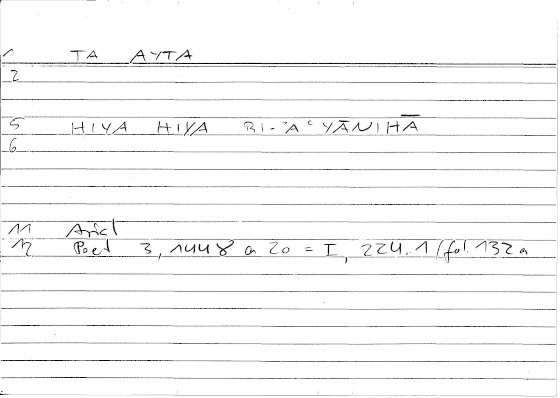 1 TA AYTA
2
5 HIYA HIYA BI-ʾAʿYĀNIHĀ
6
11 Arist
12 Poet 3, 1448 a 20 = I, 224.1 / fol. 132a